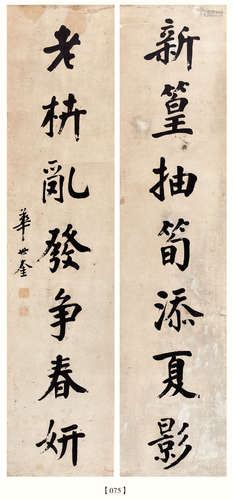 新篁抽筍添夏影
老枿亂發争春妍
華世奎
【075】